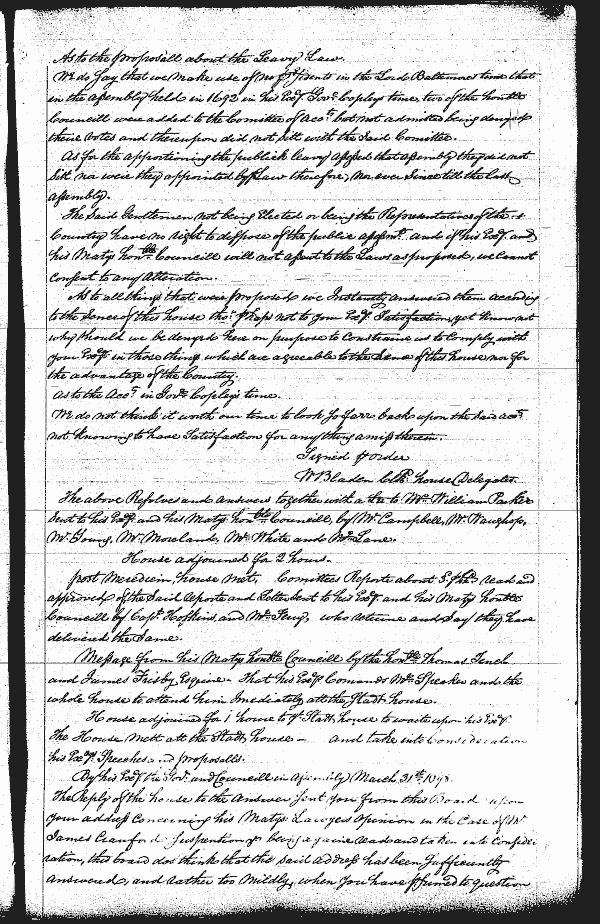 As to the proposall about the Leavy Law.
We do say that we make use of no presidents in the Lord Baltemores time that
in the assembly held in 1692 in his Exy. Govr. Copleys time, two of the honble
Councill were added to the Comittee of Accts. but not admitted being denyed
their votes and thereupon did not sitt with the said Comittee.
As for the apportioning the publick leavy assesed that assembly they did not
sitt nor were they appointed by Law therefore, Nor ever since till the last
assembly.
The said Gentlemen not being Elected or being the Representatives of the
Country have no right to dispose of the publie assesmt. and if his Exy. and
his Matys honble Councill will not assent to the Laws as proposed, we cannot
Consent to any Alteration.
As to all things that were proposed we Instantly answered them according
to the sence of this house tho: prhaps not to your Exy. Satisfaction, yet know not
why should we be denyed here on purpose to Constraine us to Comply with
your Excy. in those things which are agreeable to the sence of this house nor for
the advantage of the Country.
as to the Acct. in Govr. Copleys time.
We do not think it worth our time to look so farr back upon the said acct.
not knowing to have Satisfaction for any thing amiss therein.
Signed p order
W Bladen Clk. house Delegates.
The above Resolves and answers together with a Lre to Mr. William Parker
sent to his Exy. and his Matys honble Councill, by Mr. Campbell, Mr. Waughop,
Mr. Young, Mr. Moreland, Mr. White and Mr. Lane.
House adjourned for 2 hours.
post Merediem house met. Comittees Reporte about read and
approved of the said Reporte and Letter sent to his Exy. and his Matys honble
Councill by Capt. Hoskins and Mr. who returne and say they have
delivered the same.
Message from his Matys honble Councill by the honble Thomas Tench
and James Frisby Esquire - That his Exy. Comands Mr. Speaker and the
whole house to attend him Imediately att the Stadt house.
House adjourned for 1 houre to ye Stadt house to waite upon his Exy.
The House Mett att the Stadt house - and take into Consideration
his Exy. Speeches and proposalls.
By his Exy. the Govr. and Councill in Assembly March 31st 1698.
The Reply of the house to the Answer sent you from this Board upon
your address Concerning his Matys Lawyers Opinion in the Case of Mr
James Crawford Suspention being againe read and taken into Consider-
ation, this board dos think that the said Address has been sufficiently
answered, and rather too Mildly, when you have prsumed to question